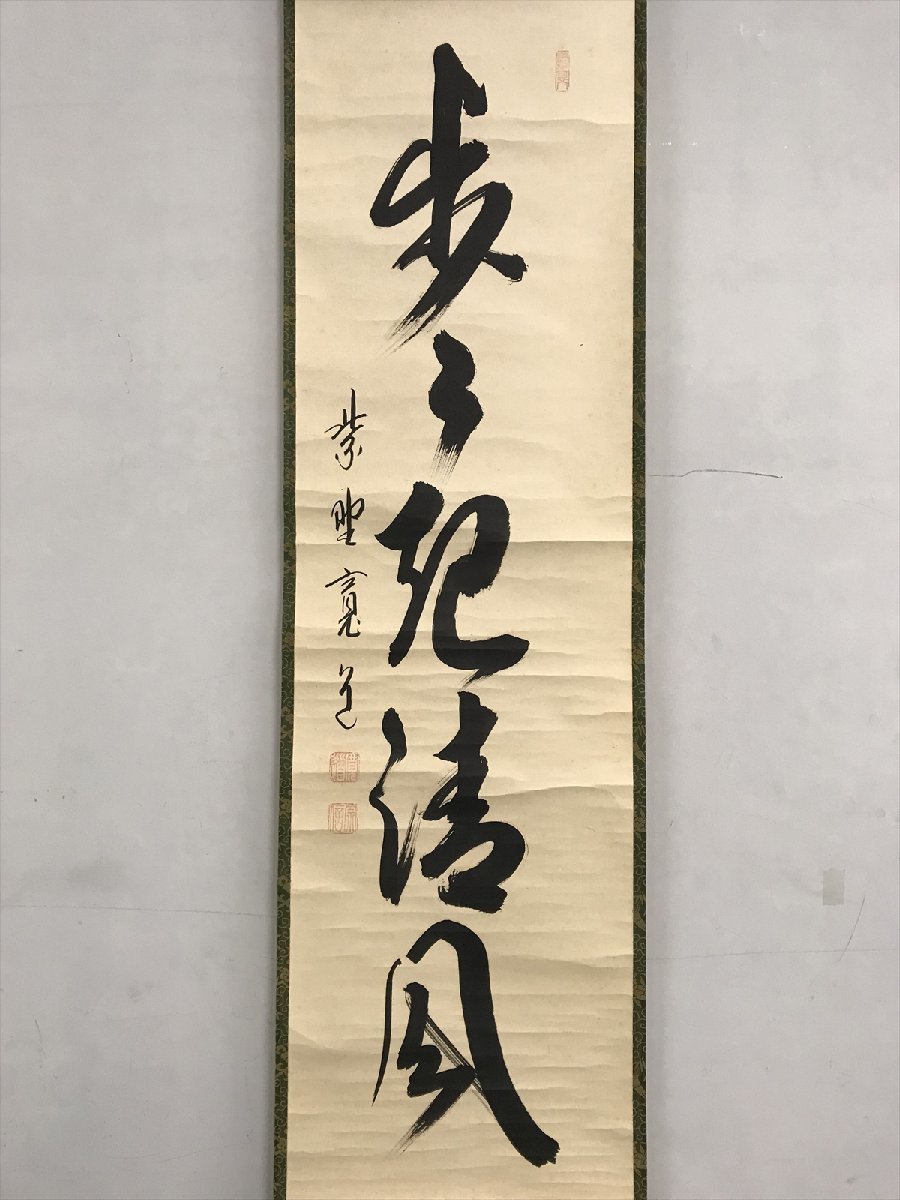 歩々起清風
紫野寛道